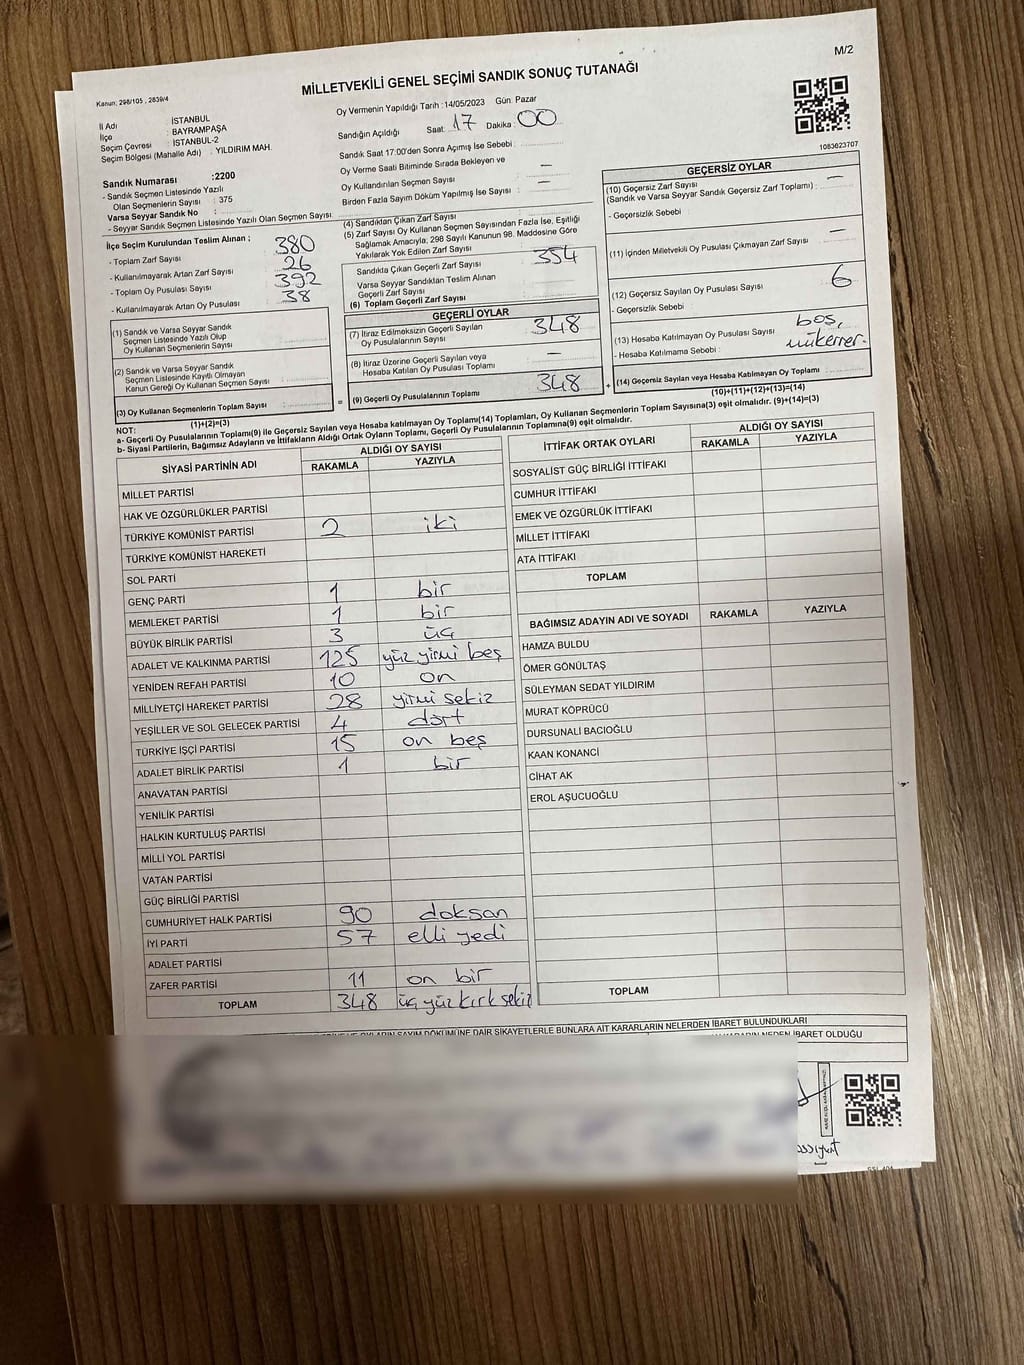 M/2
MİLLETVEKİLİ GENEL SEÇİMİ SANDIK SONUÇ TUTANAĞI
Kanun: 298/105 , 2839/4
İl Adı : İSTANBUL
İlçe : BAYRAMPAŞA
Seçim Çevresi : İSTANBUL-2
Seçim Bölgesi (Mahalle Adı) : YILDIRIM MAH.
Oy Vermenin Yapıldığı Tarih :14/05/2023 Gün: Pazar
Sandığın Açıldığı Saat: 17 Dakika: 00
Sandık Saat 17:00'den Sonra Açımış İse Sebebi :
Oy Verme Saati Bitiminde Sırada Bekleyen ve
Oy Kullandırılan Seçmen Sayısı : —
Birden Fazla Sayım Döküm Yapılmış İse Sayısı : —
1083623707
Sandık Numarası :2200
- Sandık Seçmen Listesinde Yazılı
Olan Seçmenlerin Sayısı : 375
Varsa Seyyar Sandık No :
- Seyyar Sandık Seçmen Listesinde Yazılı Olan Seçmen Sayısı
İlçe Seçim Kurulundan Teslim Alınan ;
- Toplam Zarf Sayısı : 380
- Kullanılmayarak Artan Zarf Sayısı : 26
- Toplam Oy Pusulası Sayısı : 392
- Kullanılmayarak Artan Oy Pusulası : 38
(1) Sandık ve Varsa Seyyar Sandık
Seçmen Listesinde Yazılı Olup
Oy Kullanan Seçmenlerin Sayısı :
(2) Sandık ve Varsa Seyyar Sandık
Seçmen Listesinde Kayıtlı Olmayan
Kanun Gereği Oy Kullanan Seçmen Sayısı :
(3) Oy Kullanan Seçmenlerin Toplam Sayısı :
(1)+(2)=(3)
(4) Sandıktan Çıkan Zarf Sayısı :
(5) Zarf Sayısı Oy Kullanan Seçmen Sayısından Fazla İse, Eşitliği
Sağlamak Amacıyla, 298 Sayılı Kanunun 98. Maddesine Göre
Yakılarak Yok Edilen Zarf Sayısı :
Sandıkta Çıkan Geçerli Zarf Sayısı : 354
Varsa Seyyar Sandıktan Teslim Alınan
Geçerli Zarf Sayısı :
(6) Toplam Geçerli Zarf Sayısı :
GEÇERLİ OYLAR
(7) İtiraz Edilmeksizin Geçerli Sayılan
Oy Pusulalarının Sayısı : 348
(8) İtiraz Üzerine Geçerli Sayılan veya
Hesaba Katılan Oy Pusulası Toplamı : —
(9) Geçerli Oy Pusulalarının Toplamı : 348
GEÇERSİZ OYLAR
(10) Geçersiz Zarf Sayısı : —
(Sandık ve Varsa Seyyar Sandık Geçersiz Zarf Toplamı) :
- Geçersizlik Sebebi :
(11) İçinden Milletvekili Oy Pusulası Çıkmayan Zarf Sayısı : —
(12) Geçersiz Sayılan Oy Pusulası Sayısı : 6
- Geçersizlik Sebebi : boş,
(13) Hesaba Katılmayan Oy Pusulası Sayısı : mükerrer
- Hesaba Katılmama Sebebi :
(14) Geçersiz Sayılan veya Hesaba Katılmayan Oy Toplamı :
(10)+(11)+(12)+(13)=(14)
NOT:
a- Geçerli Oy Pusulalarının Toplamı(9) ile Geçersiz Sayılan veya Hesaba Katılmayan Oy Toplamı(14) Toplamları, Oy Kullanan Seçmenlerin Toplam Sayısına(3) eşit olmalıdır. (9)+(14)=(3)
b- Siyasi Partilerin, Bağımsız Adayların ve İttifakların Aldığı Ortak Oyların Toplamı, Geçerli Oy Pusulalarının Toplamına(9) eşit olmalıdır.
SİYASİ PARTİNİN ADI ALDIĞI OY SAYISI
RAKAMLA YAZIYLA
MİLLET PARTİSİ
HAK VE ÖZGÜRLÜKLER PARTİSİ
TÜRKİYE KOMÜNİST PARTİSİ 2 iki
TÜRKİYE KOMÜNİST HAREKETİ
SOL PARTİ
GENÇ PARTİ 1 bir
MEMLEKET PARTİSİ 1 bir
BÜYÜK BİRLİK PARTİSİ 3 üç
ADALET VE KALKINMA PARTİSİ 125 yüz yirmi beş
YENİDEN REFAH PARTİSİ 10 on
MİLLİYETÇİ HAREKET PARTİSİ 28 yirmi sekiz
YEŞİLLER VE SOL GELECEK PARTİSİ 4 dört
TÜRKİYE İŞÇİ PARTİSİ 15 on beş
ADALET BİRLİK PARTİSİ 1 bir
ANAVATAN PARTİSİ
YENİLİK PARTİSİ
HALKIN KURTULUŞ PARTİSİ
MİLLİ YOL PARTİSİ
VATAN PARTİSİ
GÜÇ BİRLİĞİ PARTİSİ
CUMHURİYET HALK PARTİSİ 90 doksan
İYİ PARTİ 57 elli yedi
ADALET PARTİSİ
ZAFER PARTİSİ 11 on bir
TOPLAM 348 üç yüz kırk sekiz
İTTİFAK ORTAK OYLARI ALDIĞI OY SAYISI
RAKAMLA YAZIYLA
SOSYALİST GÜÇ BİRLİĞİ İTTİFAKI
CUMHUR İTTİFAKI
EMEK VE ÖZGÜRLÜK İTTİFAKI
MİLLET İTTİFAKI
ATA İTTİFAKI
TOPLAM
BAĞIMSIZ ADAYIN ADI VE SOYADI RAKAMLA YAZIYLA
HAMZA BULDU
ÖMER GÖNÜLTAŞ
SÜLEYMAN SEDAT YILDIRIM
MURAT KÖPRÜCÜ
DURSUNALİ BACIOĞLU
KAAN KONANCİ
CİHAT AK
EROL AŞUCUOĞLU
TOPLAM
OYLARIN SAYIM DÖKÜMÜNE DAİR ŞİKAYETLERLE BUNLARA AİT KARARLARIN NELERDEN İBARET BULUNDUKLARI
NEDEN İBARET OLDUĞU